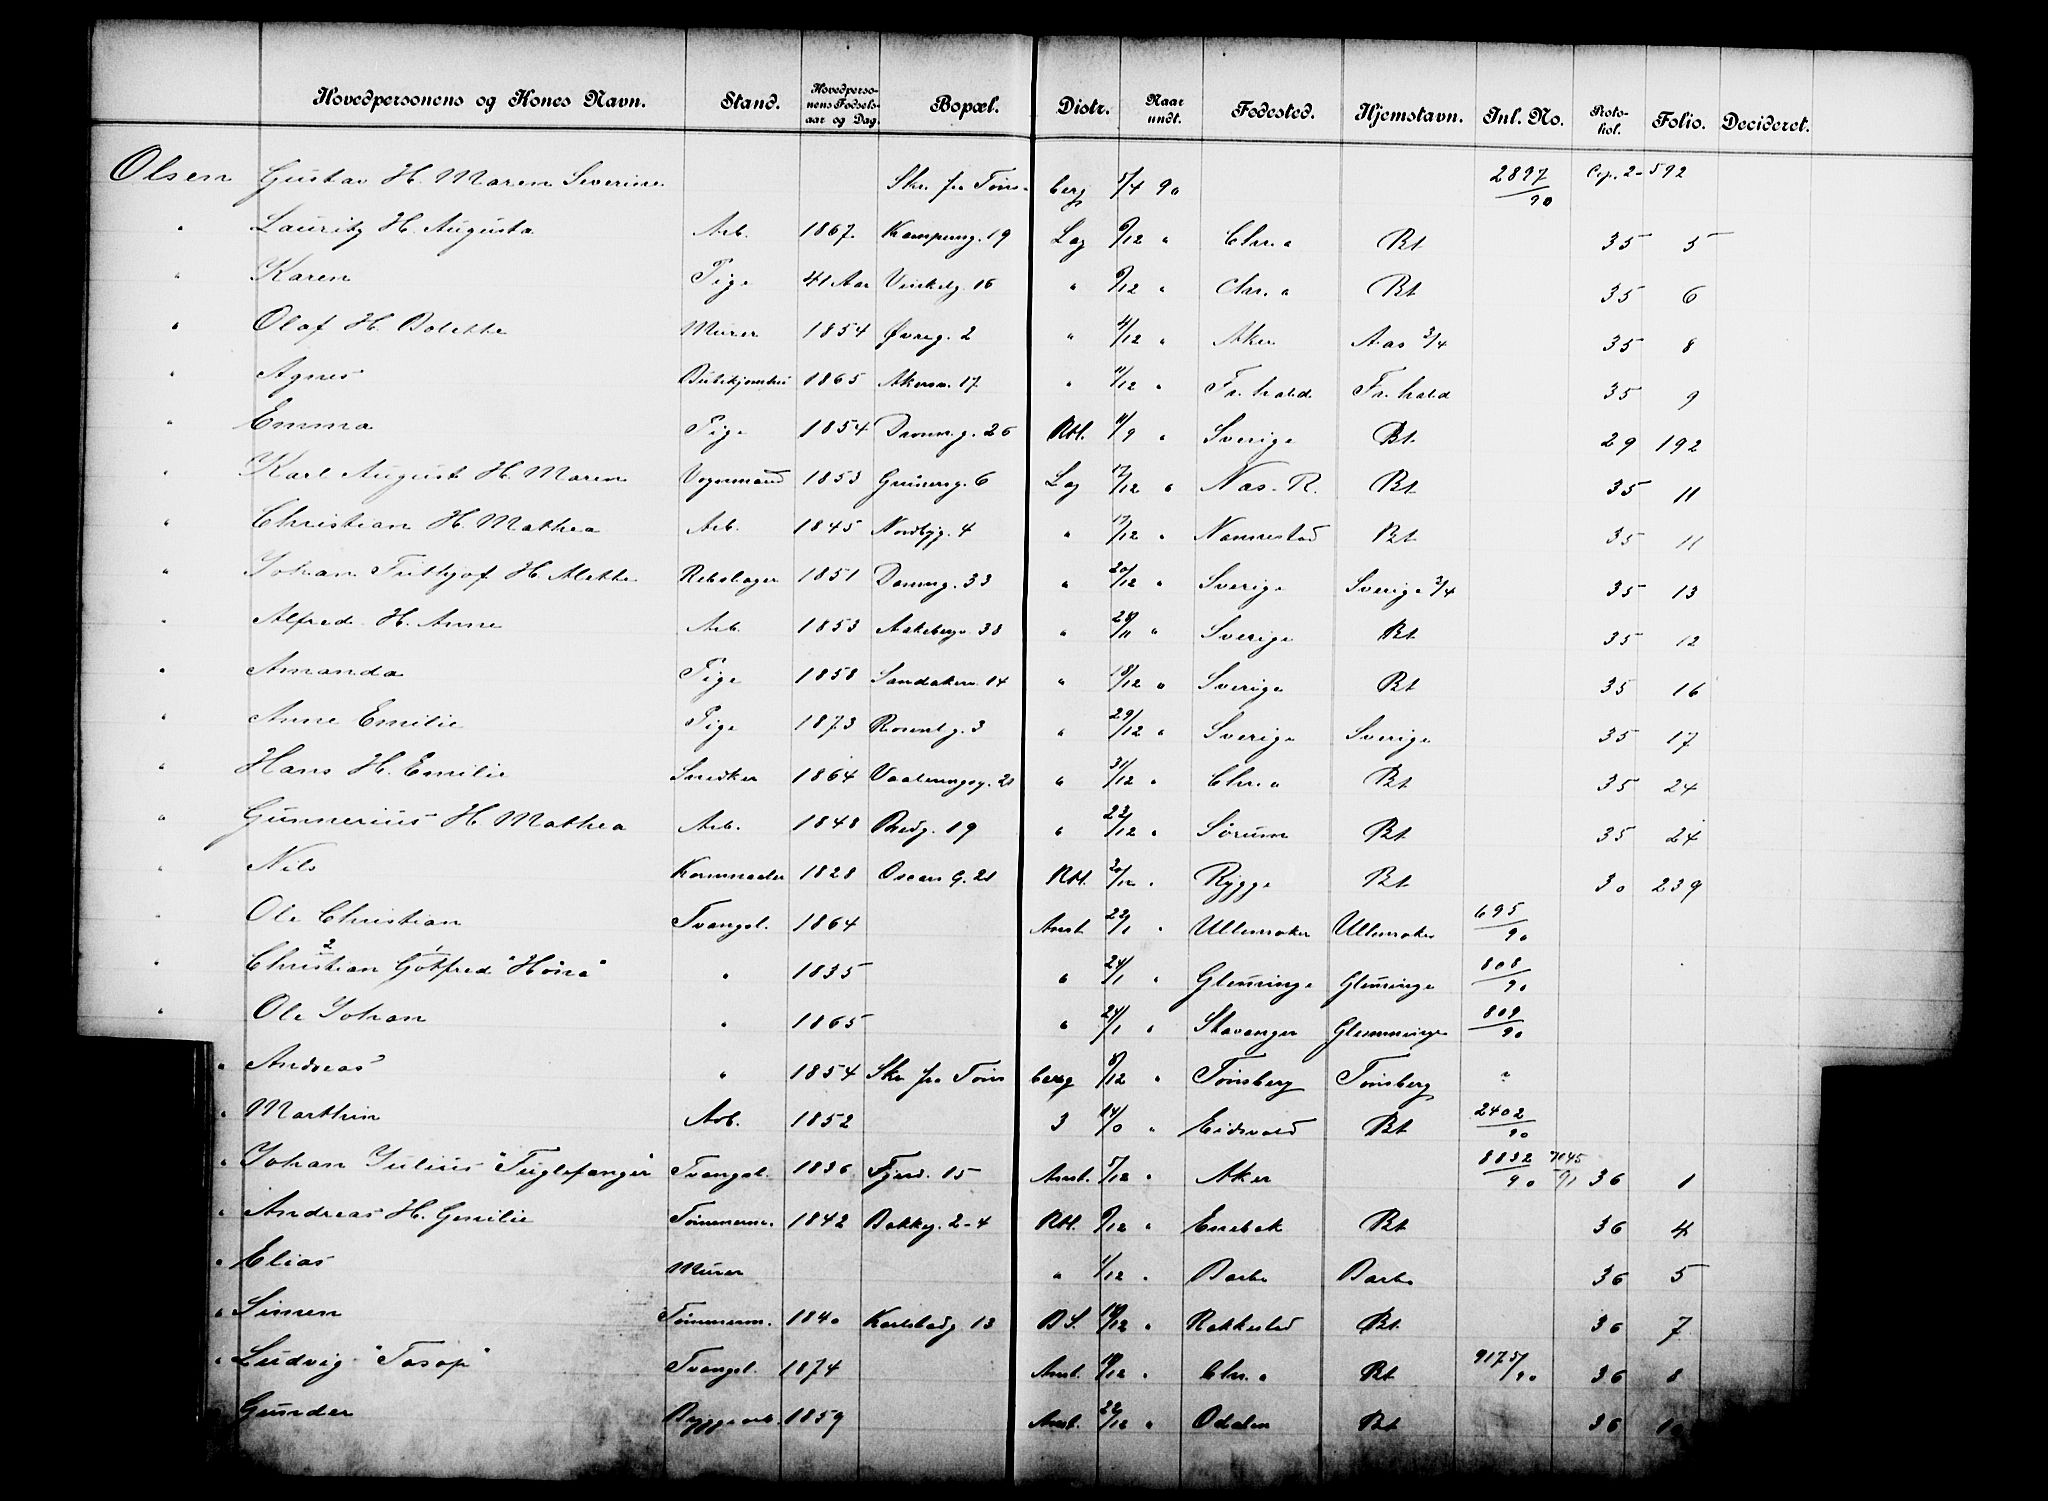 Hovedpersonens og Kones Navn. Stand. Hovedpersonens Fødselsaar og Dag. Bopæl. Distr. Naar undt. Fødested. Hjemstavn. Inl. No. Protokol. Folio. Decideret.
Olsen Gustav H. Maren Severine Skr. fra Tønsberg 5/4 90 2897/90 Cop. 2-592
" Lauritz H. Augusta Arb. 1867 Kampeng. 19 Lag 6/12 " Chr.a Bt 35 5
" Karen Pige 41 Aar Vinkelg. 16 " 6/12 " Chr.a Bt 35 6
" Olaf H. Bolette Murer 1854 Øvreg. 2 " 4/12 " Aker Aas 3/4 35 8
" Agnes 1865 Akersv. 17 " 11/12 " Fr.hald Fr.hald 35 9
" Emma Pige 1854 Davnsg. 26 Rbl. 11/9 " Sverige Bt 29 192
" Karl August H. Maren Vognmand 1853 Grünerg. 6 Lag 17/12 " Næs. R. Bt 35 11
" Christian H. Mathea Arb. 1845 Nordbyg. 4 " 17/12 " Nannestad Bt 35 11
" Johan Frithjof H. Alette Rebslager 1851 Davnsg. 33 " 20/12 " Sverige Sverige 3/4 35 13
" Alfred H. Anne Arb. 1853 Aakebergv. 38 " 28/11 " Sverige Bt 35 12
" Amanda Pige 1858 Sandakerv. 14 " 18/12 " Sverige Bt 35 16
" Anne Emilie Pige 1873 Rosenbg. 3 " 29/12 " Sverige Sverige 35 17
" Hans H. Emilie Snedker 1864 Vaalerengsg. 21 " 31/12 " Chr.a Bt 35 24
" Gunnerius H. Mathea Arb. 1848 Bredg. 19 " 22/12 " Sørum Bt 35 24
" Nils Kornmaaler 1828 Oscars G. 21 Rbl. 30/12 " Rygge Bt 30 239
" Ole Christian Tvangsl. 1864 Anst. 22/1 " Ullensaker Ullensaker 695/90
" Christian Gotfred "Høna" " 1835 " 24/1 " Glemminge Glemminge 808/90
" Ole Johan " 1865 " 24/1 " Stavanger Glemminge 809/90
" Andreas " 1854 Skr. fra Tønsberg 8/12 " Tønsberg Tønsberg "
" Marthin Arb. 1852 3 14/0 " Eidsvold Bt 2402/90
" Johan Julius "Fuglefanger" Tvangsl. 1836 Fjerd. 15 Anst. 5/12 " Aker 8832/90 7045/91 36 1
" Andreas H. Gmilie Tømmerm. 1842 Bakkeg. 2-4 Rbl. 9/12 " Enebak Bt 36 4
" Elias Murer " 1/12 " Barbo Barbo 36 5
" Simen Tømmerm. 1840 Karlstadg. 13 B.S. 18/12 " Rakkestad Bt. 36 7
" Ludvig "Tosop" Tvangsl. 1874 Anst. 18/12 " Chr.a Bt 9175/90 36 8
Gunder Byggearb. 1859 Anst. 22/12 " Odalen Bt 36 10